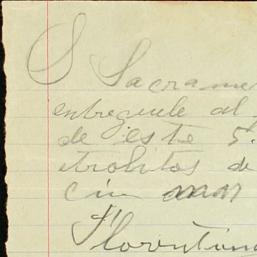 S Sacrame
entreguele al
de este 5
itrolitos de
cin
Florentino